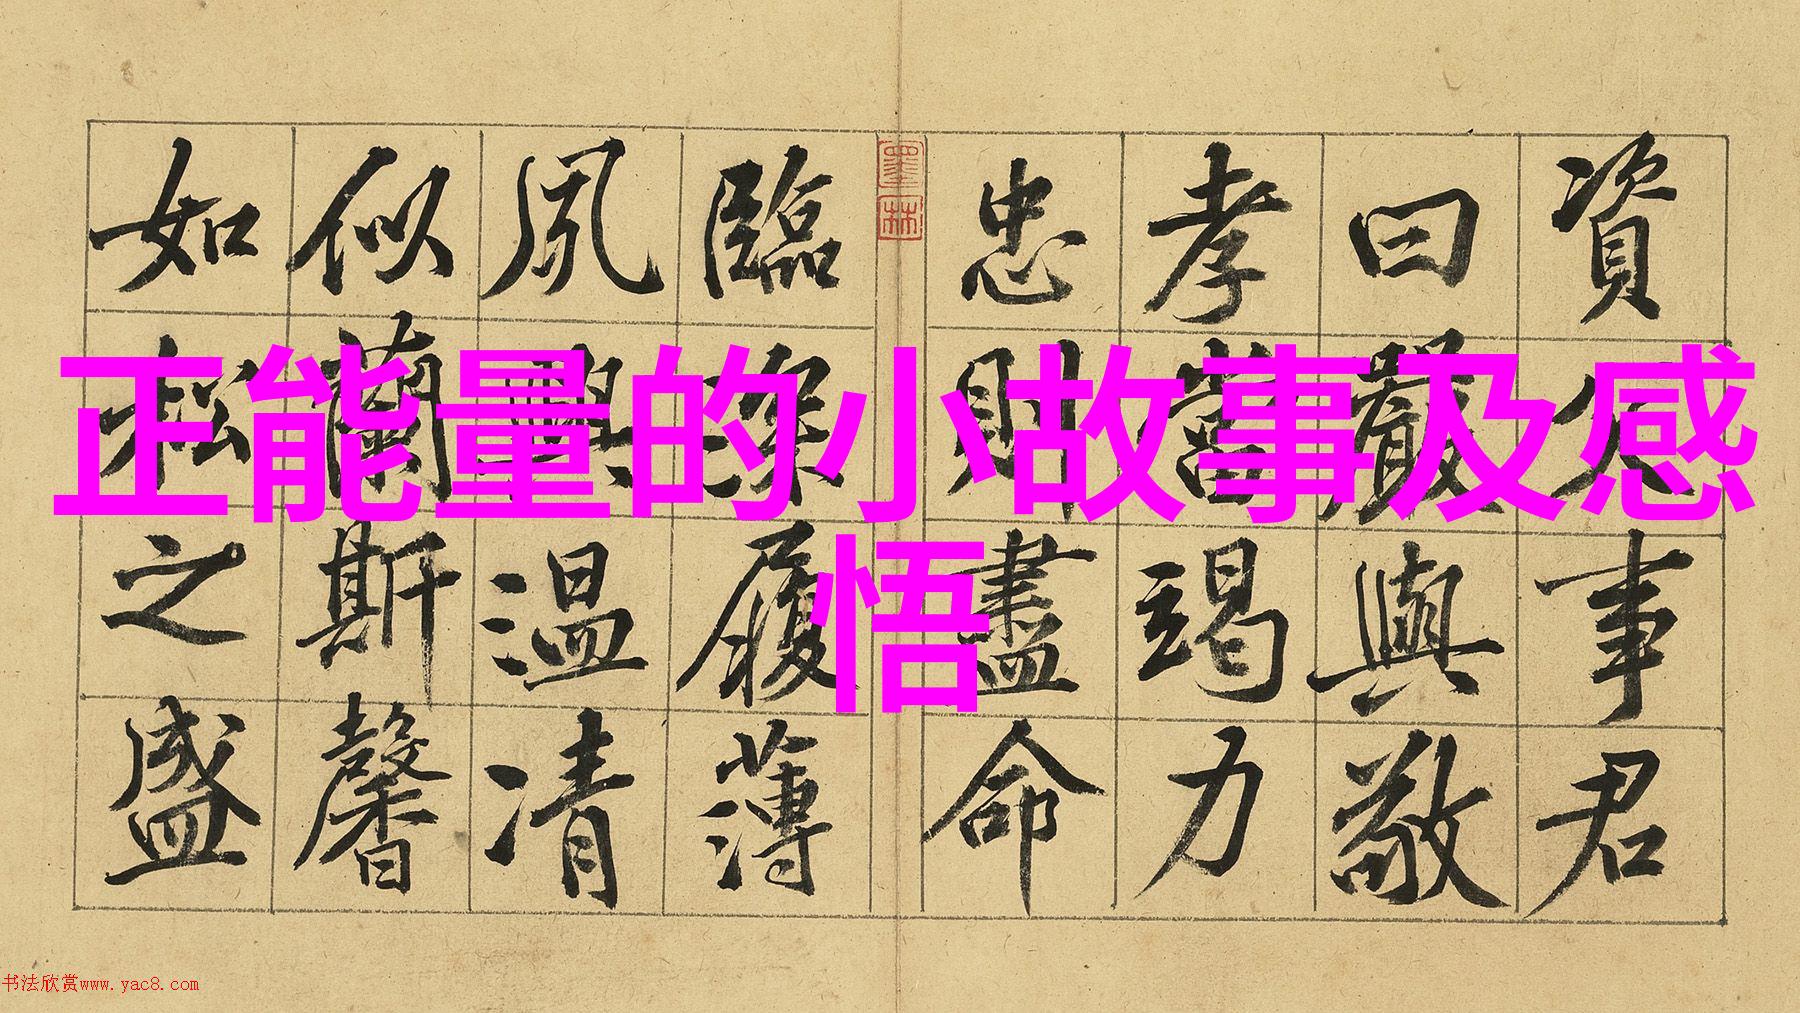 正能量的小故事及感
悟
資父事君
曰嚴與敬
孝當竭力
忠則盡命
墨林
臨深履薄
夙興温凊
似蘭斯馨
如松之盛
书法欣赏www.yac8.com